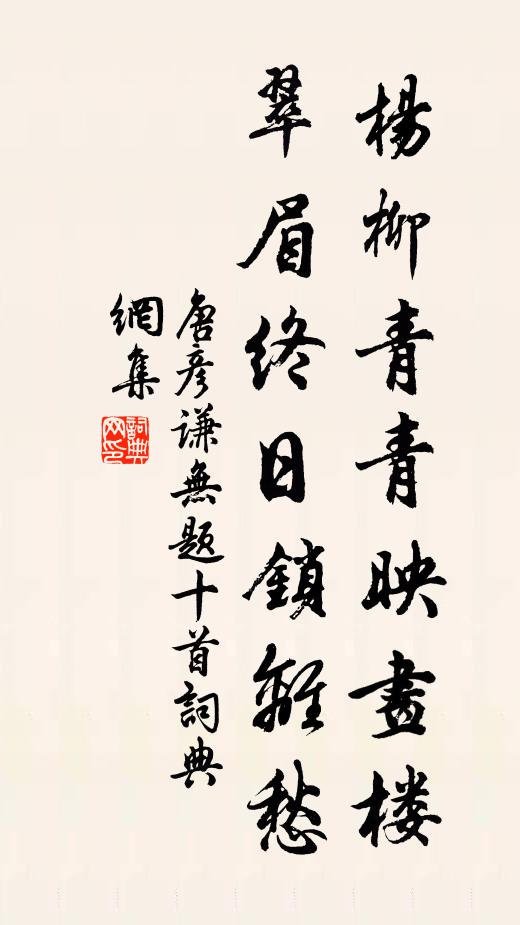 楊柳青青映畫楼
翠眉終日鎖離愁
唐彦謙無題十首詞典
網集
詞典
网印